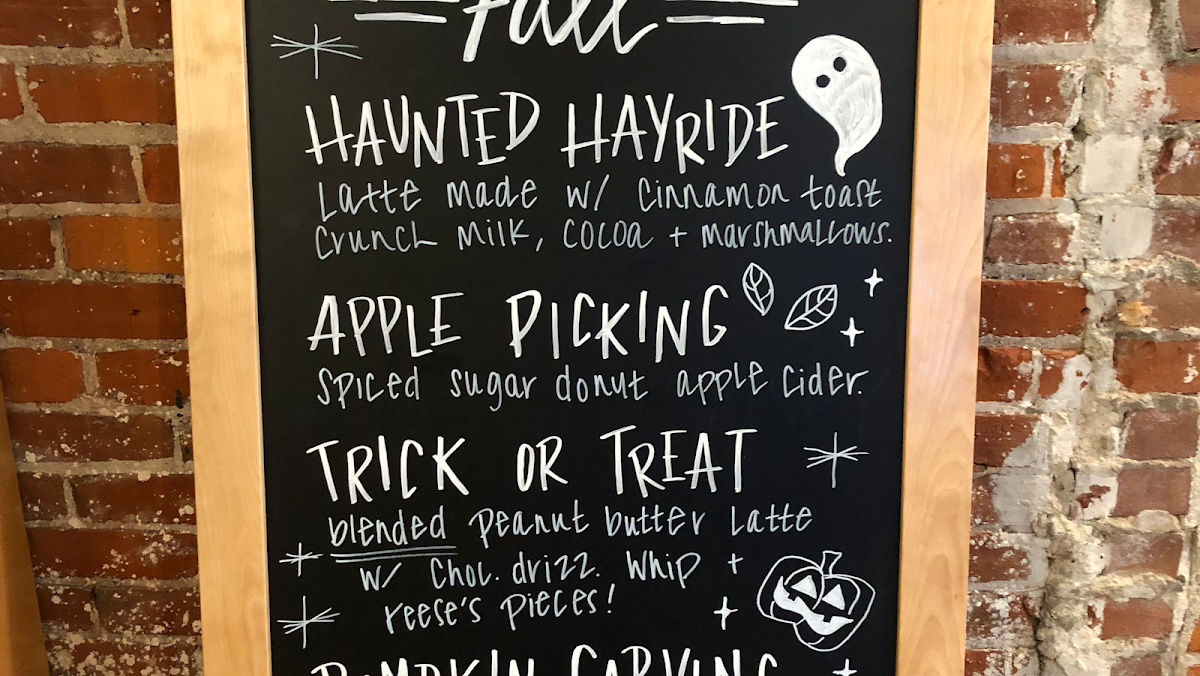 Fall
HAUNTED HAYRIDE
Latte made w/ cinnamon toast
crunch milk, cocoa + marshmallows.
APPLE PICKING
spiced sugar donut apple cider.
TRICK OR TREAT
blended peanut butter latte
w/ choc. drizz. whip +
reese's pieces!
PUMPKIN CARVING